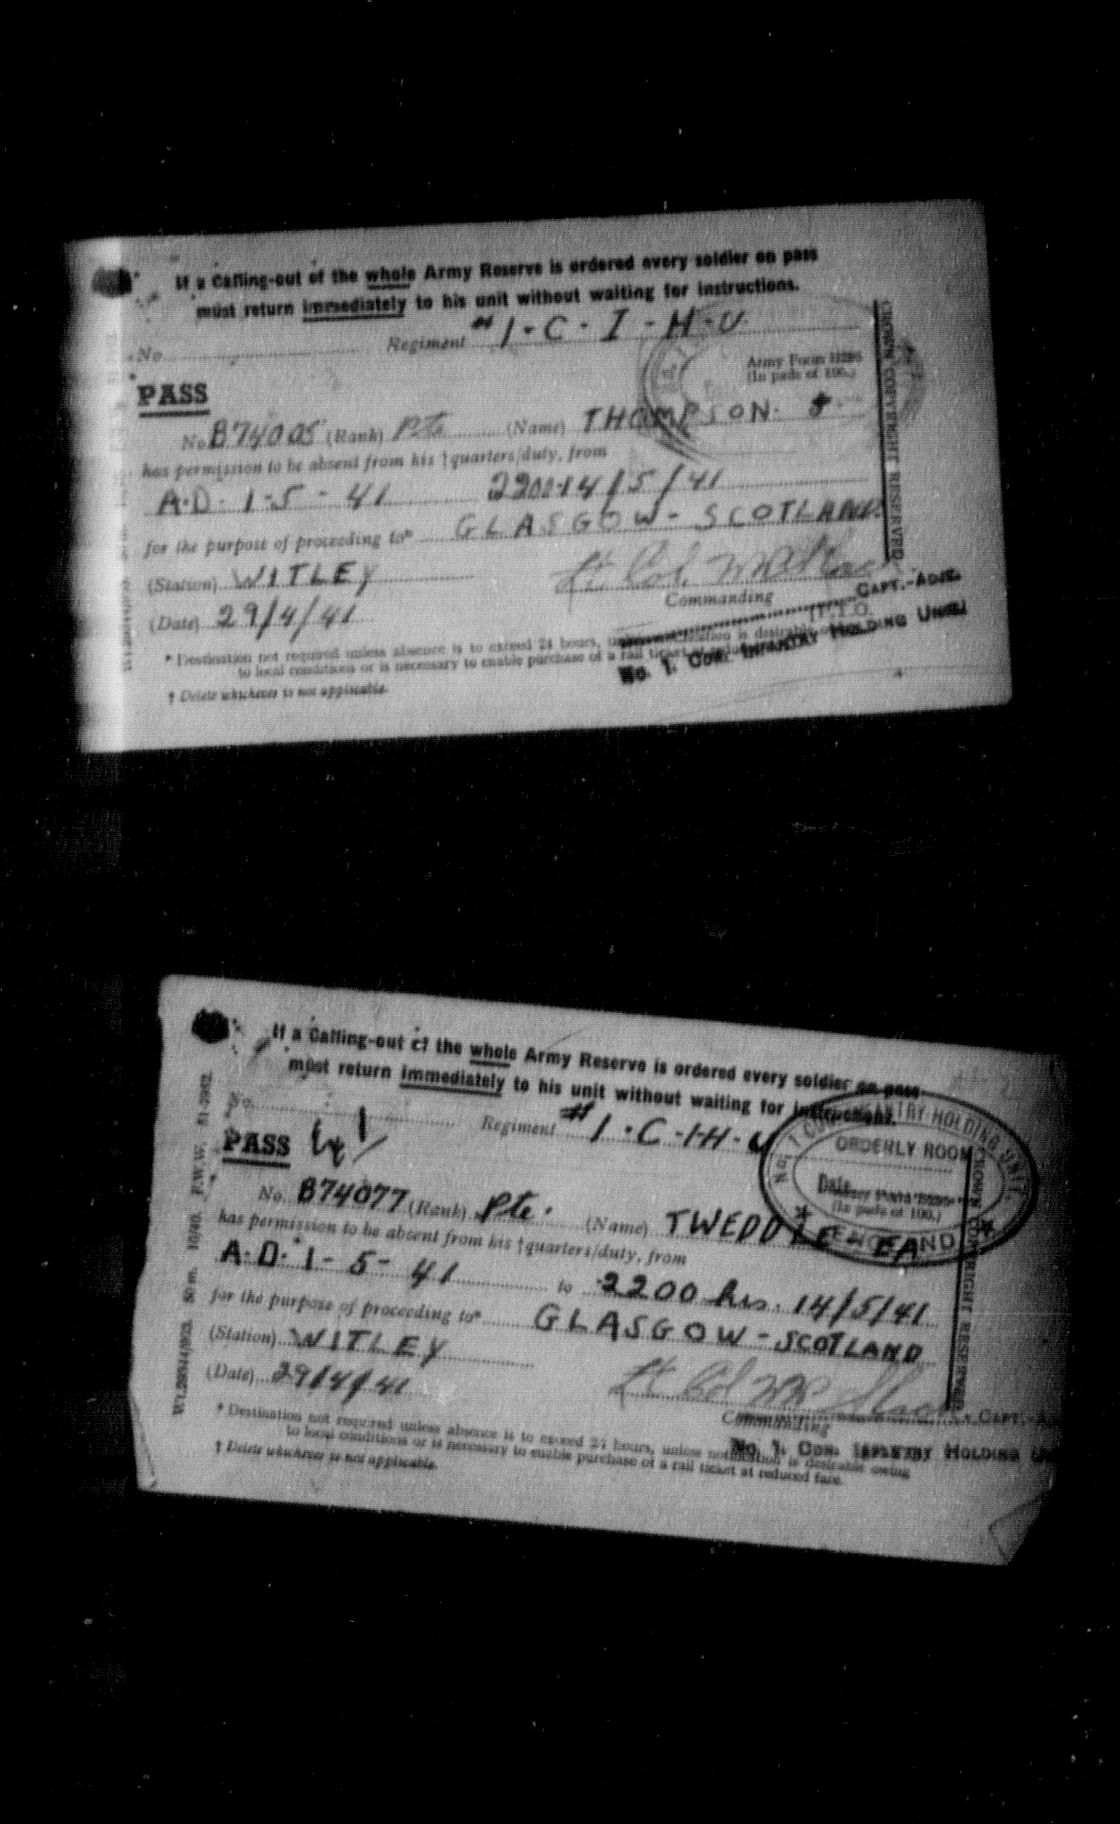 If a Calling-out of the whole Army Reserve is ordered every soldier on pass
must return immediately to his unit without waiting for instructions.
No. Regiment #1-C-I-H-U.
Army Form
(In pads of 100.)
PASS
No. B74005 (Rank) Pte (Name) THOMPSON.
has permission to be absent from his †quarters/duty, from
A.D. 1-5-41 2200 14/5/41
for the purpose of proceeding to* GLASGOW - SCOTLAND
(Station) WITLEY Lt Col.
Commanding
(Date) 29/4/41 CAPT.-ADJT.
(P.T.O.
* Destination not required unless absence is to exceed 24 hours, is desirable
to local conditions or is necessary to enable purchase of a rail ticket at
No. 1. CDN. INFANTRY HOLDING UNIT
† Delete whichever is not applicable.
CROWN COPYRIGHT RESERVED
If a Calling-out of the whole Army Reserve is ordered every soldier on pass
must return immediately to his unit without waiting for instructions.
Regiment #1-C-I-H-U
No. 1 INFANTRY HOLDING UNIT
ORDERLY ROOM
Date
(In pads of 100.)
ENGLAND
PASS
No. B74077 (Rank) Pte. (Name) TWEDDLE - EA
has permission to be absent from his †quarters/duty, from
A.D. 1-5-41 to 2200 hrs. 14/5/41
for the purpose of proceeding to* GLASGOW - SCOTLAND
(Station) WITLEY Lt Col
(Date) 29/4/41
Commanding CAPT.
* Destination not required unless absence is to exceed 24 hours, unless notification is desirable owing
to local conditions or is necessary to enable purchase of a rail ticket at reduced fare.
No. 1. CDN. INFANTRY HOLDING
† Delete whichever is not applicable.
CROWN COPYRIGHT RESERVED